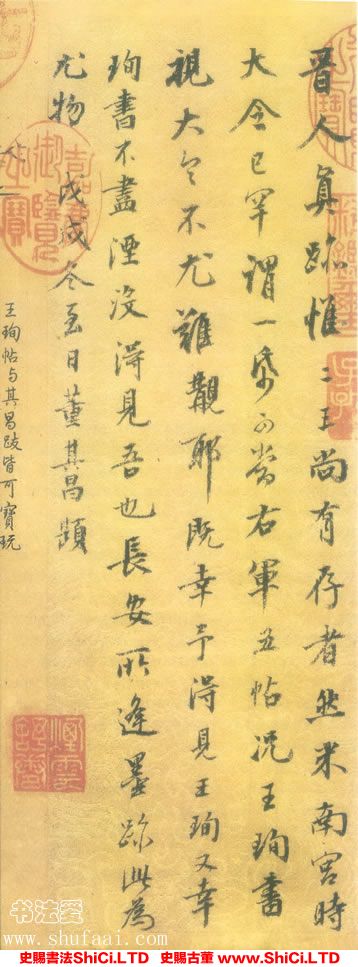 晋人真跡惟二王尚有存者然米南宮時
大令已罕謂一紙可當右軍五帖况王珣書
視大令不尤難覯耶既幸予得見王珣又幸
珣書不盡湮沒得見吾也長安所逢墨跡此為
尤物 戊戌冬至日董其昌題
王珣帖与其昌跋皆可寶玩
書法愛
www.shufaai.com
史賜書法ShiCi.LTD 史賜古董 www.ShiCi.LTD